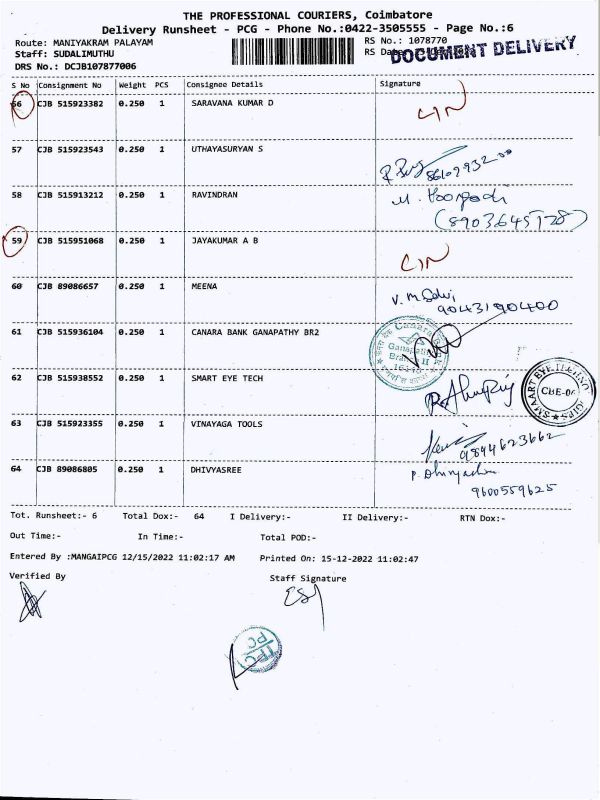 THE PROFESSIONAL COURIERS, Coimbatore
Delivery Runsheet - PCG - Phone No.:0422-3505555 - Page No.:6
Route: MANIYAKRAM PALAYAM
RS No.: 1078770
Staff: SUDALIMUTHU
RS Date
DOCUMENT DELIVERY
DRS No.: DCJB107877006
S No Consignment No Weight PCS Consignee Details Signature
56 CJB 515923382 0.250 1 SARAVANA KUMAR D
57 CJB 515923543 0.250 1 UTHAYASURYAN S
58 CJB 515913212 0.250 1 RAVINDRAN
(8903645128)
59 CJB 515951068 0.250 1 JAYAKUMAR A B
60 CJB 89086657 0.250 1 MEENA
9043190400
61 CJB 515936104 0.250 1 CANARA BANK GANAPATHY BR2
Canara Bank
Branch II
62 CJB 515938552 0.250 1 SMART EYE TECH
63 CJB 515923355 0.250 1 VINAYAGA TOOLS
9894623662
64 CJB 89086805 0.250 1 DHIVYASREE
9600559625
Tot. Runsheet:- 6 Total Dox:- 64 I Delivery:- II Delivery:- RTN Dox:-
Out Time:- In Time:- Total POD:-
Entered By :MANGAIPCG 12/15/2022 11:02:17 AM Printed On: 15-12-2022 11:02:47
Verified By Staff Signature